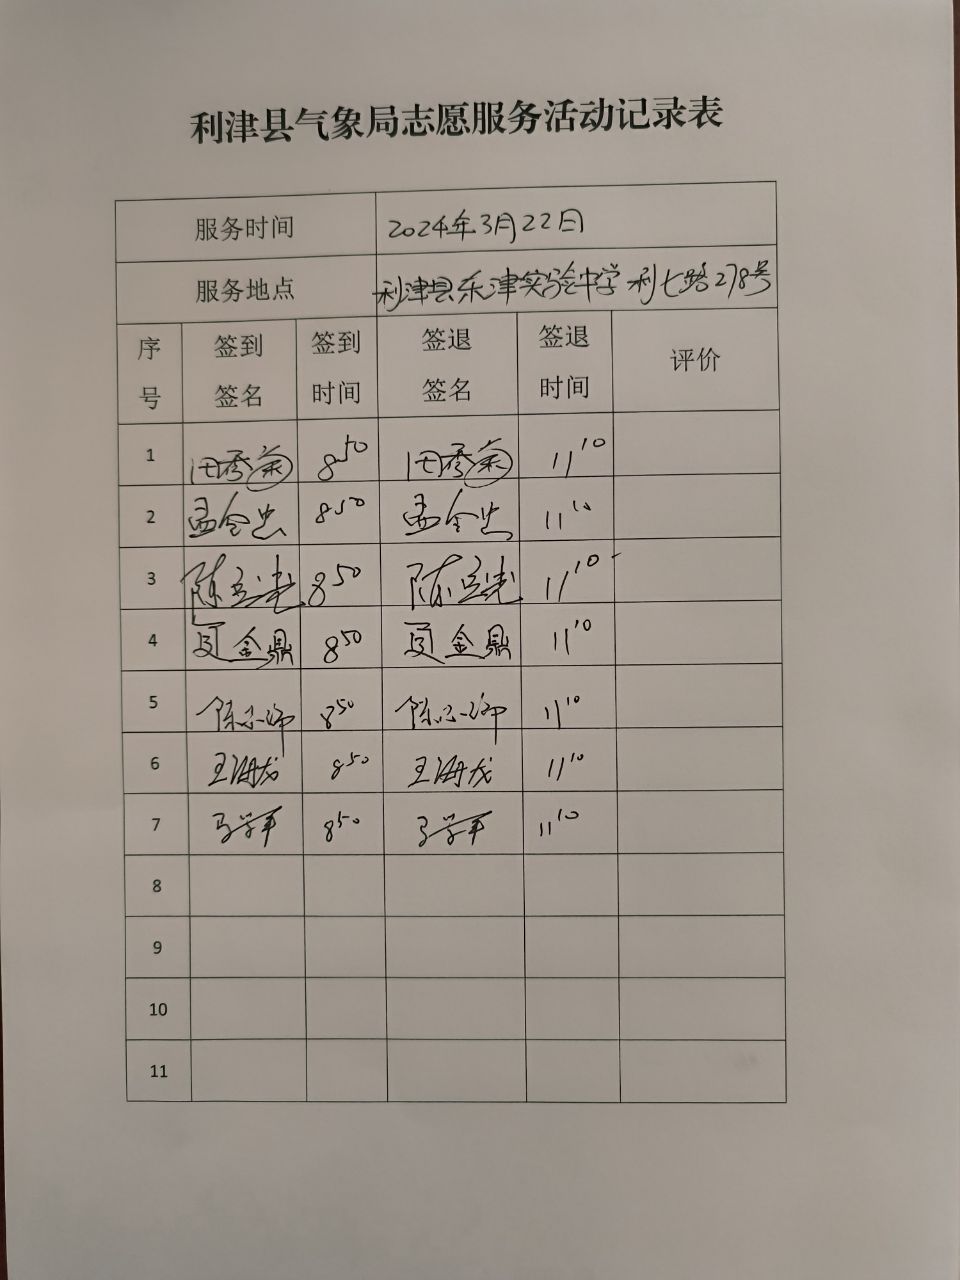 利津县气象局志愿服务活动记录表
服务时间 2024年3月22日
服务地点 利津县东津实验中学 利七路278号
序号 签到签名 签到时间 签退签名 签退时间 评价
1 田秀菊 8 50 田秀菊 11 10
2 孟令忠 8 50 孟令忠 11 10
3 8 50 11 10
4 金鼎 8 50 金鼎 11 10
5 陈 8 50 陈 11 10
6 王海龙 8 50 王海龙 11 10
7 8 50 11 10
8
9
10
11